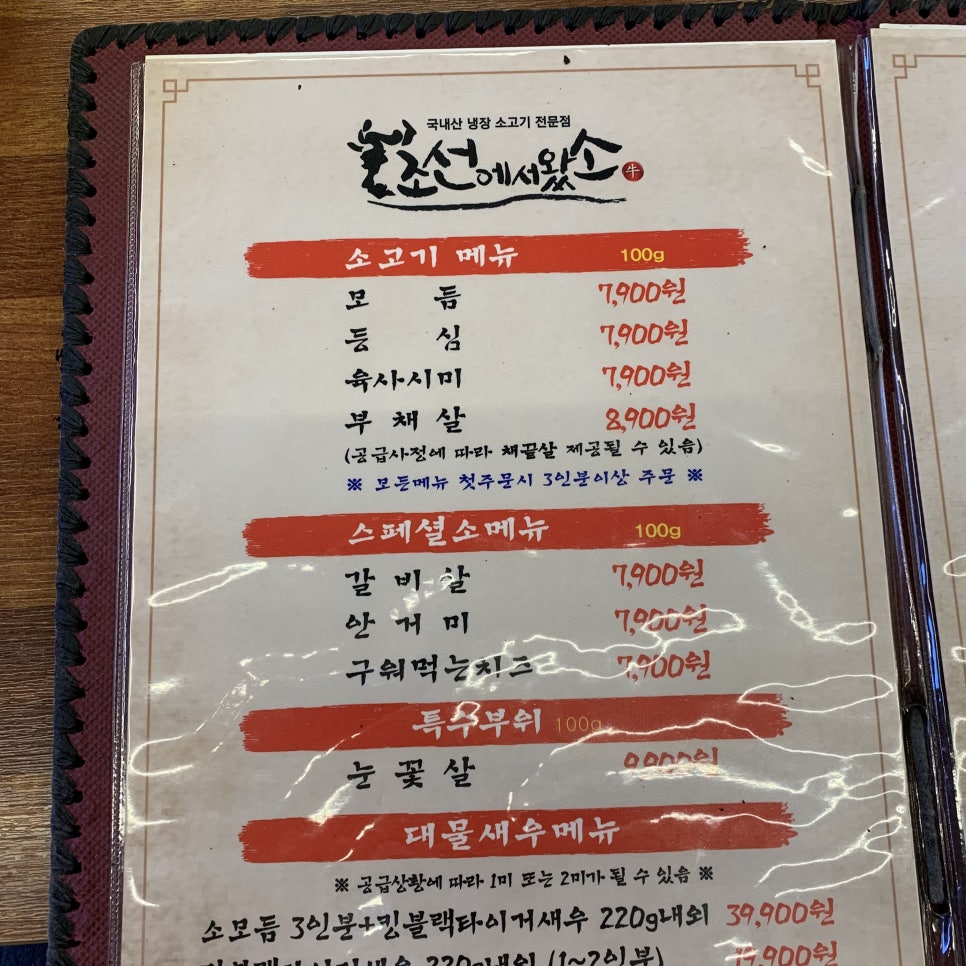 국내산 냉장 소고기 전문점
조선에서왔소 牛
소고기 메뉴 100g
모듬 7,900원
등심 7,900원
육사시미 7,900원
부채살 8,900원
(공급사정에 따라 채끝살 제공될 수 있음)
※ 모든메뉴 첫주문시 3인분이상 주문 ※
스페셜소메뉴 100g
갈비살 7,900원
안거미 7,900원
구워먹는치즈 7,900원
특수부위 100g
눈꽃살 9,900원
대물새우메뉴
※ 공급상황에 따라 1미 또는 2미가 될 수 있음 ※
소모듬 3인분+킹블랙타이거새우 220g내외 39,900원
220g내외 (1~2인분)